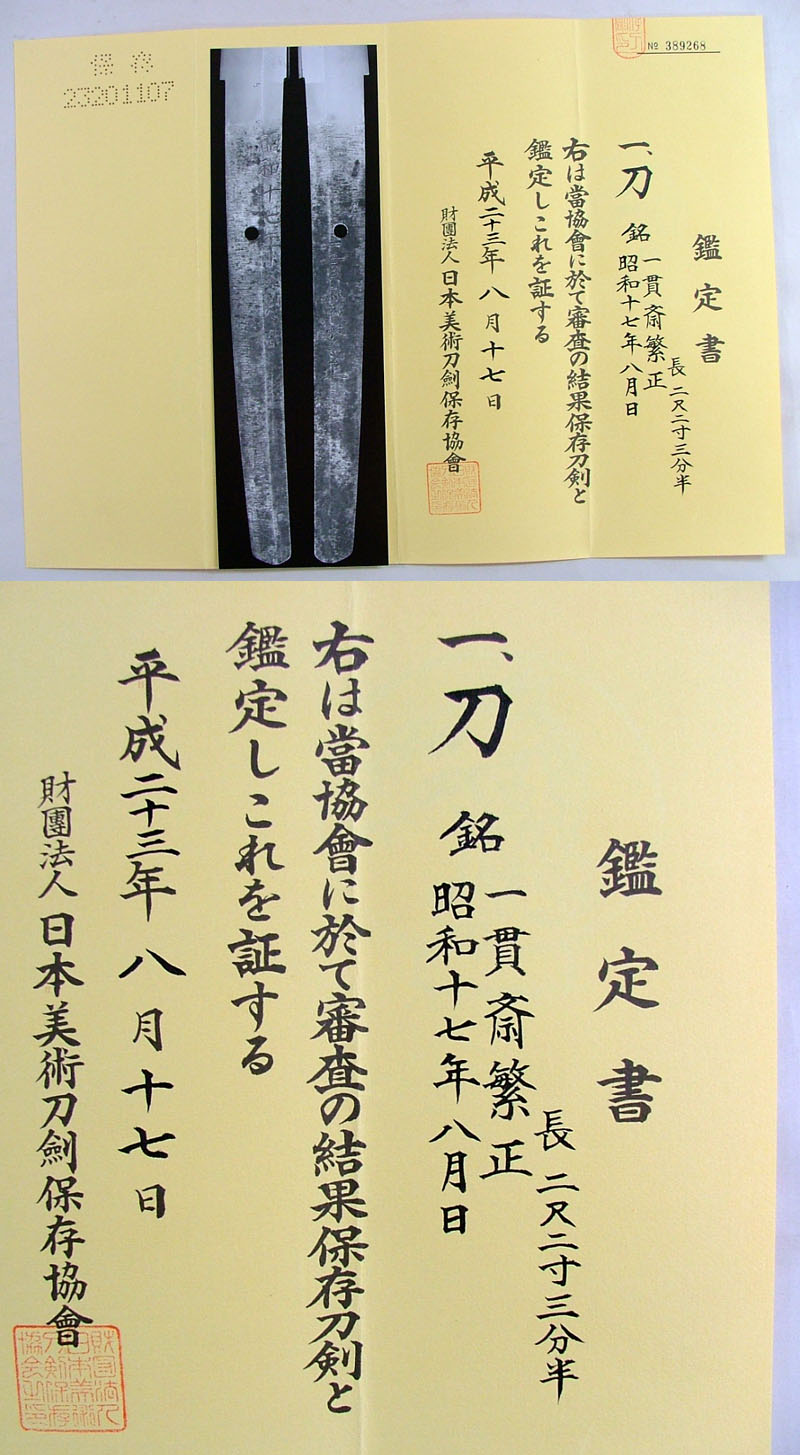 № 389268
鑑定書
長 二尺二寸三分半
一、刀 銘 一貫斎繁正
昭和十七年八月日
右は當協會に於て審査の結果保存刀剣と
鑑定しこれを証する
平成二十三年八月十七日
財團法人日本美術刀劍保存協會
保存
23201107
鑑定書
長 二尺二寸三分半
一、刀 銘 一貫斎繁正
昭和十七年八月日
右は當協會に於て審査の結果保存刀剣と
鑑定しこれを証する
平成二十三年八月十七日
財團法人日本美術刀劍保存協會